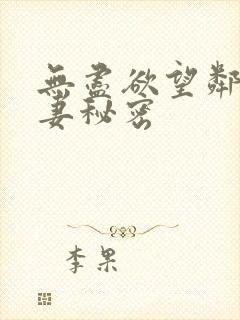 無盡欲望鄰
妻秘密
李果